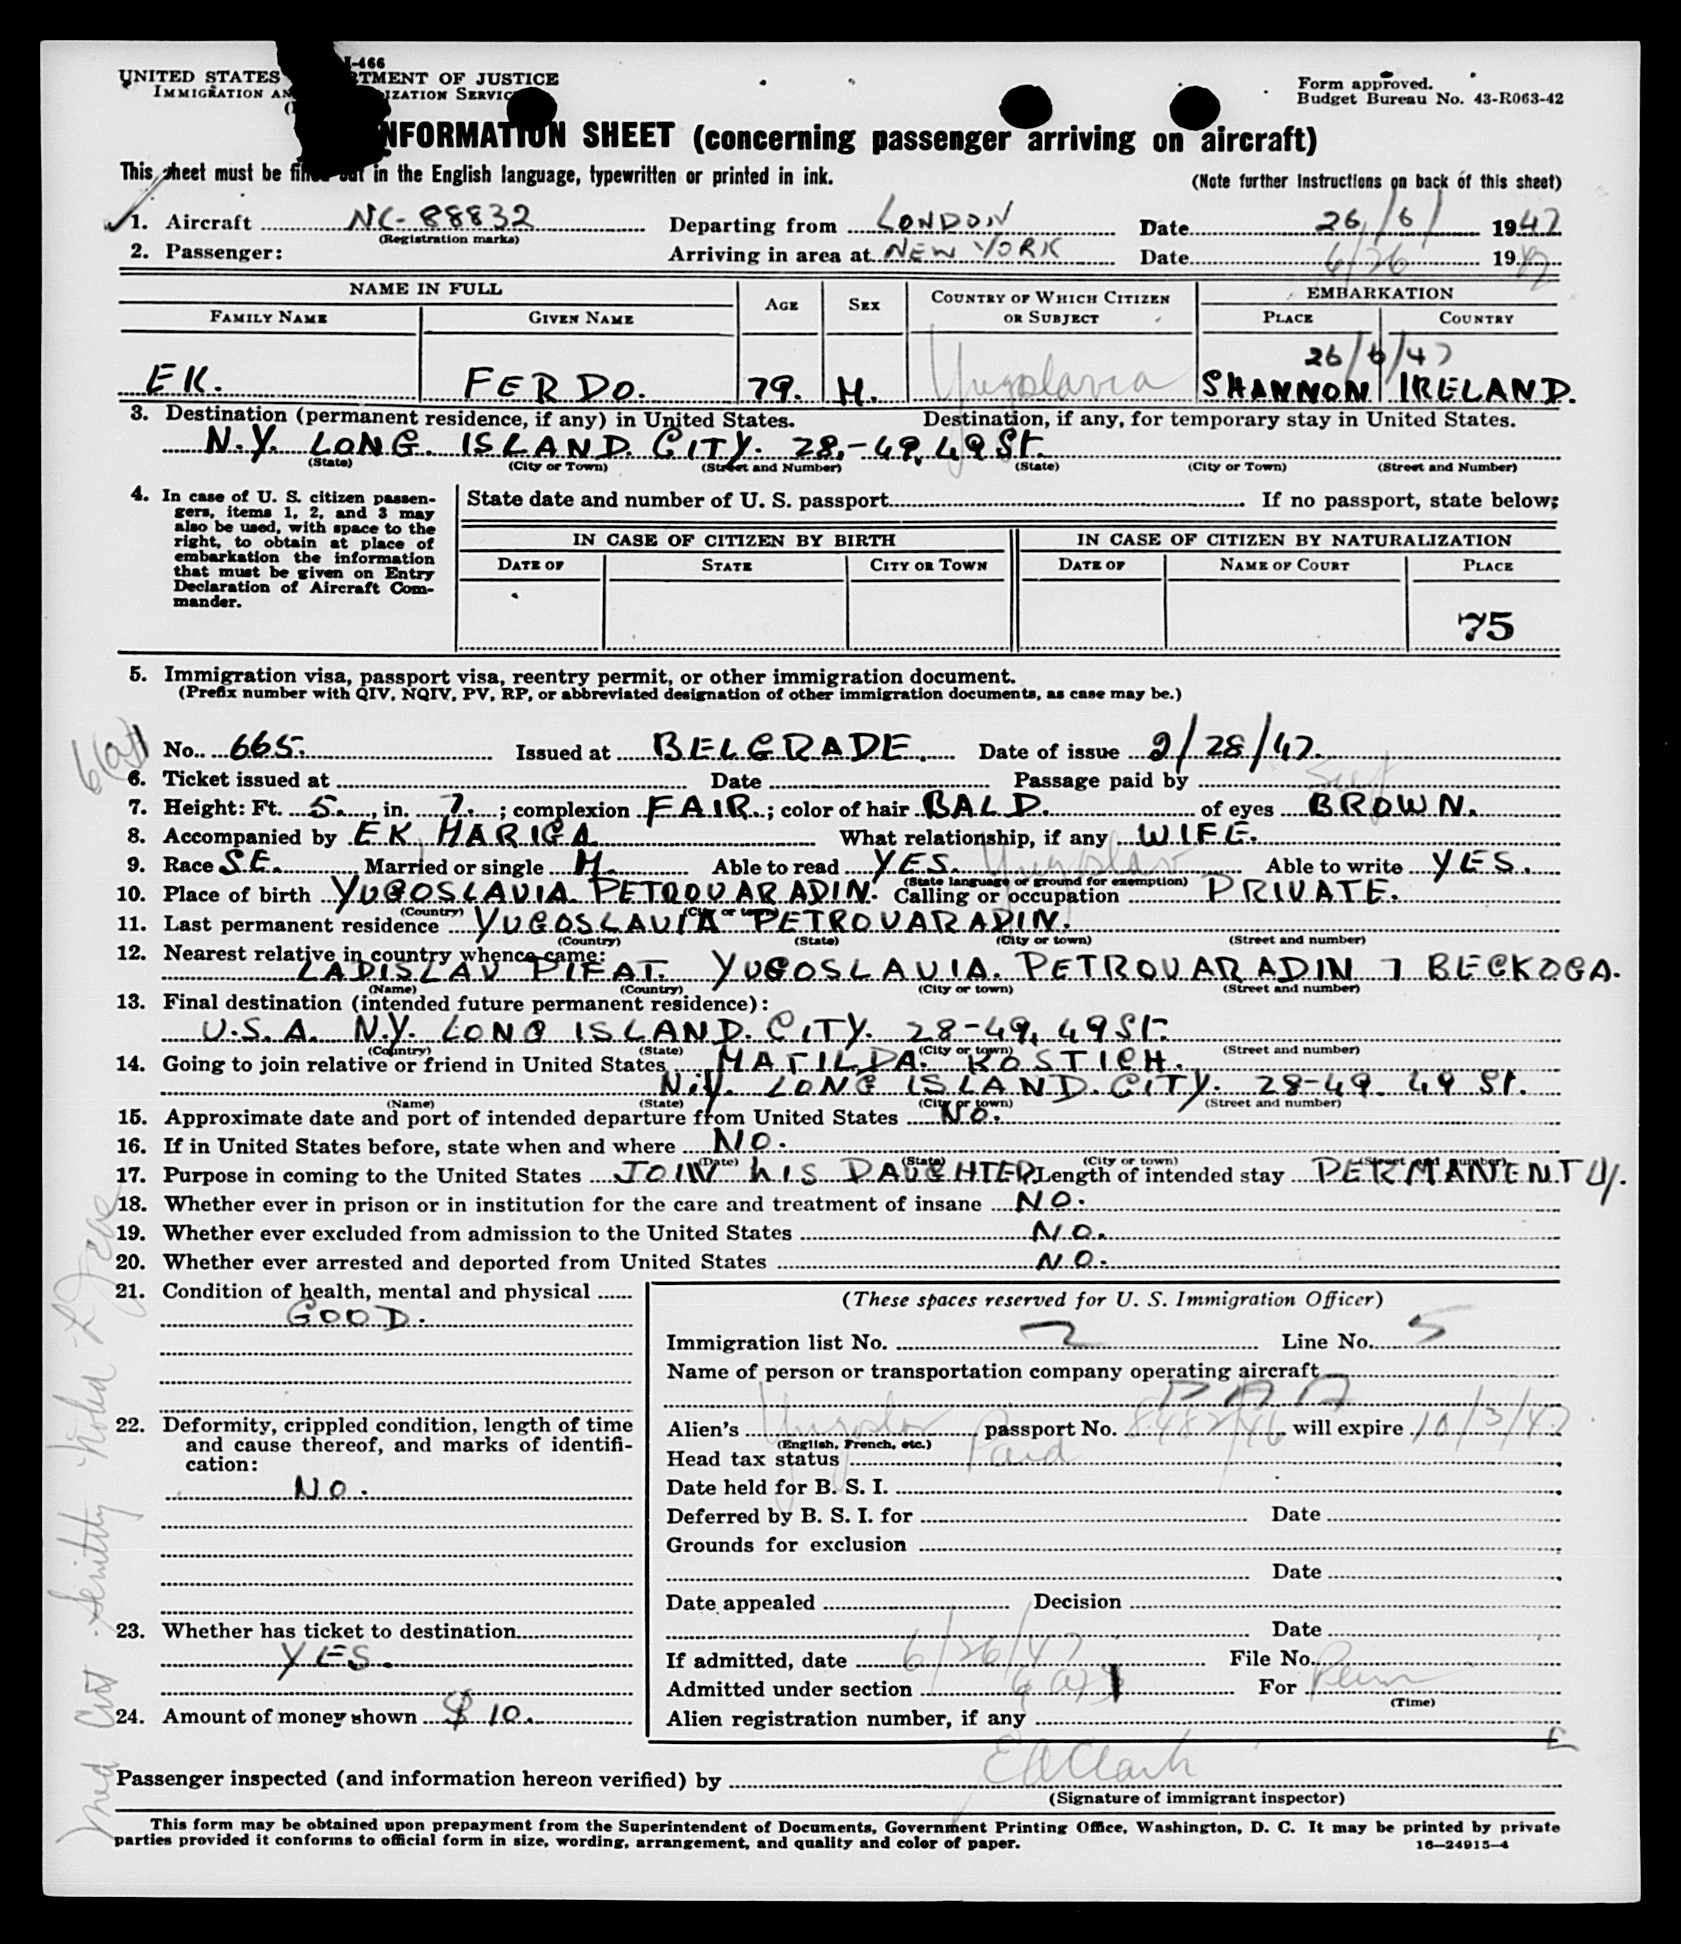 I-466
UNITED STATES TMENT OF JUSTICE
IMMIGRATION AN IZATION SERVIC
Form approved.
Budget Bureau No. 43-R063-42
NFORMATION SHEET (concerning passenger arriving on aircraft)
This sheet must be filled out in the English language, typewritten or printed in ink. (Note further instructions on back of this sheet)
1. Aircraft NC-88832 Departing from LONDON Date 26/6/ 1947
(Registration marks)
2. Passenger: Arriving in area at NEW YORK Date 6/26 1947
NAME IN FULL AGE SEX COUNTRY OF WHICH CITIZEN OR SUBJECT EMBARKATION
FAMILY NAME GIVEN NAME PLACE COUNTRY
26/6/47
EK. FERDO. 79. M. Yugoslavia SHANNON IRELAND.
3. Destination (permanent residence, if any) in United States. Destination, if any, for temporary stay in United States.
N.Y. LONG ISLAND CITY. 28-49, 49 St.
(State) (City or Town) (Street and Number) (State) (City or Town) (Street and Number)
4. In case of U. S. citizen passen-
gers, items 1, 2, and 3 may
also be used, with space to the
right, to obtain at place of
embarkation the information
that must be given on Entry
Declaration of Aircraft Com-
mander.
State date and number of U. S. passport If no passport, state below:
IN CASE OF CITIZEN BY BIRTH IN CASE OF CITIZEN BY NATURALIZATION
DATE OF STATE CITY OR TOWN DATE OF NAME OF COURT PLACE
75
5. Immigration visa, passport visa, reentry permit, or other immigration document.
(Prefix number with QIV, NQIV, PV, RP, or abbreviated designation of other immigration documents, as case may be.)
No. 665. Issued at BELGRADE. Date of issue 2/28/47.
6. Ticket issued at Date Passage paid by Self
7. Height: Ft. 5., in. 7.; complexion FAIR.; color of hair BALD. of eyes BROWN.
8. Accompanied by EK MARIGA. What relationship, if any WIFE.
9. Race S.E. Married or single M. Able to read YES. Yugoslav Able to write YES.
(State language or ground for exemption)
10. Place of birth YUGOSLAVIA. PETROVARADIN. Calling or occupation PRIVATE.
(Country) (City or town)
11. Last permanent residence YUGOSLAVIA PETROVARADIN.
(Country) (State) (City or town) (Street and number)
12. Nearest relative in country whence came:
LADISLAV PIFAT. YUGOSLAVIA. PETROVARADIN 7 BECKOGA.
(Name) (Country) (City or town) (Street and number)
13. Final destination (intended future permanent residence):
U.S.A. N.Y. LONG ISLAND CITY. 28-49, 49 St.
(Country) (State) (City or town) (Street and number)
14. Going to join relative or friend in United States MATILDA. KOSTICH.
N.Y. LONG ISLAND CITY. 28-49. 49 St.
(Name) (State) (City or town) (Street and number)
15. Approximate date and port of intended departure from United States NO.
16. If in United States before, state when and where NO.
(Date) (State) (City or town) (Street and number)
17. Purpose in coming to the United States JOIN hIS DAUGHTER Length of intended stay PERMANENTLY.
18. Whether ever in prison or in institution for the care and treatment of insane NO.
19. Whether ever excluded from admission to the United States NO.
20. Whether ever arrested and deported from United States NO.
21. Condition of health, mental and physical
GOOD.
22. Deformity, crippled condition, length of time
and cause thereof, and marks of identifi-
cation:
NO.
23. Whether has ticket to destination
YES.
24. Amount of money shown $ 10.
(These spaces reserved for U. S. Immigration Officer)
Immigration list No. 2 Line No. 5
Name of person or transportation company operating aircraft
PAA
Alien's Yugoslav passport No. 8482/46 will expire 10/3/47
(English, French, etc.)
Head tax status Paid
Date held for B. S. I.
Deferred by B. S. I. for Date
Grounds for exclusion
Date
Date appealed Decision
Date
If admitted, date 6/26/47 File No.
Admitted under section For Perm
(Time)
Alien registration number, if any
Med Cert Senility
Passenger inspected (and information hereon verified) by E A Clark
(Signature of immigrant inspector)
This form may be obtained upon prepayment from the Superintendent of Documents, Government Printing Office, Washington, D. C. It may be printed by private
parties provided it conforms to official form in size, wording, arrangement, and quality and color of paper. 16—24915-4